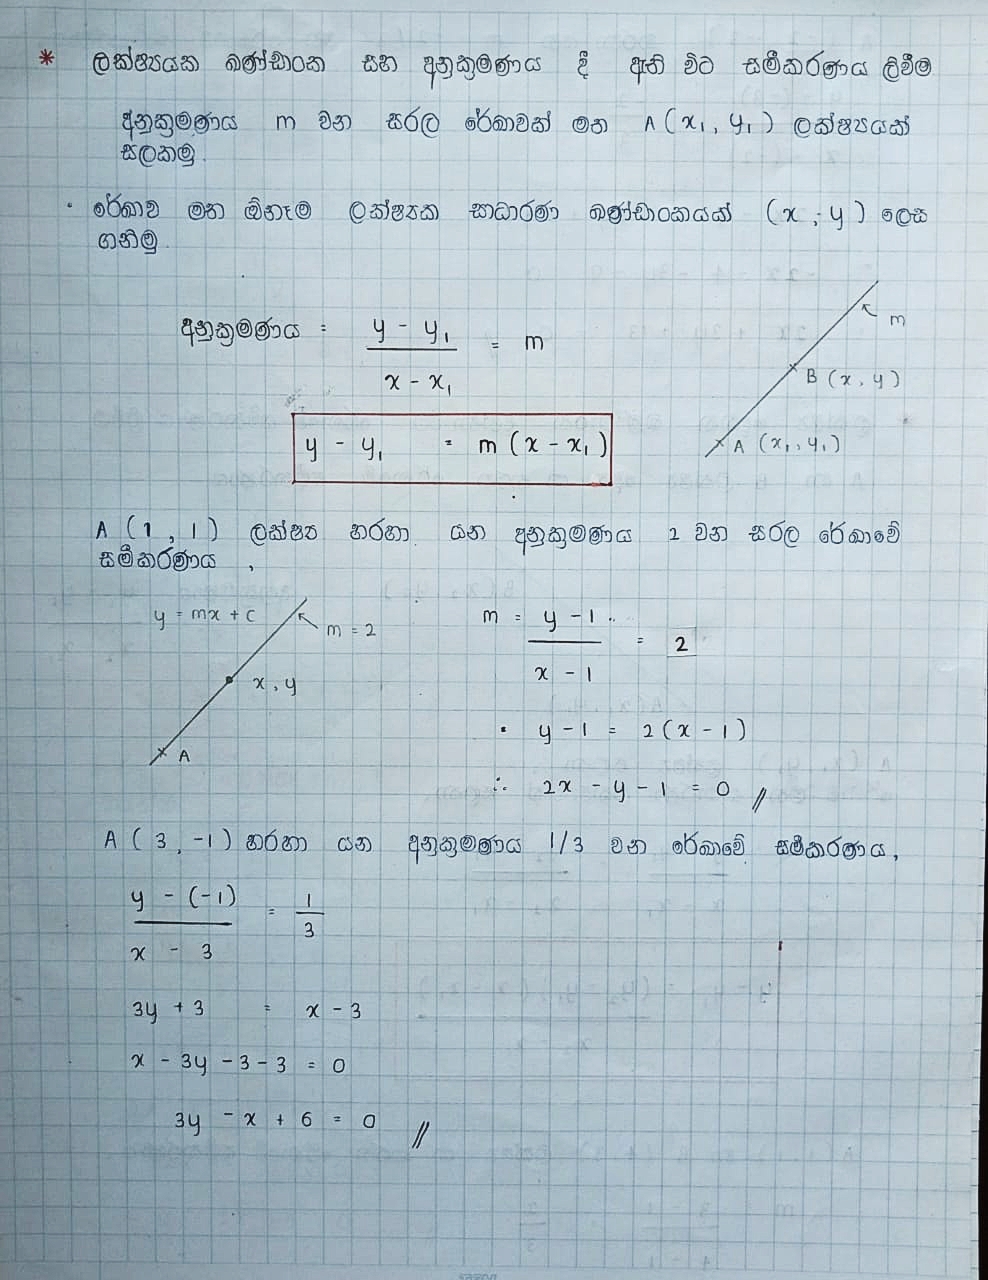 * ලක්ෂ්‍යයක ඛණ්ඩාංක සහ අනුක්‍රමණය දී ඇති විට සමීකරණය ලිවීම
අනුක්‍රමණය m වන සරල රේඛාවක් මත A ( x₁ , y₁ ) ලක්ෂ්‍යයක්
සලකමු.
· රේඛාව මත ඕනෑම ලක්ෂ්‍යක සාධාරණ ඛණ්ඩාංකයක් ( x , y ) ලෙස
ගනිමු.
අනුක්‍රමණය = (y - y₁)/(x - x₁) = m
y - y₁ = m ( x - x₁ )
m
B ( x , y )
A ( x₁ , y₁ )
A ( 1 , 1 ) ලක්ෂ්‍ය හරහා යන අනුක්‍රමණය 2 වන සරල රේඛාවේ
සමීකරණය ,
y = mx + c
m = 2
x , y
A
m = (y - 1)/(x - 1) = 2
· y - 1 = 2 ( x - 1 )
∴ 2x - y - 1 = 0 //
A ( 3 , -1 ) හරහා යන අනුක්‍රමණය 1/3 වන රේඛාවේ සමීකරණය ,
(y - (-1))/(x - 3) = 1/3
3y + 3 = x - 3
x - 3y - 3 - 3 = 0
3y - x + 6 = 0 //